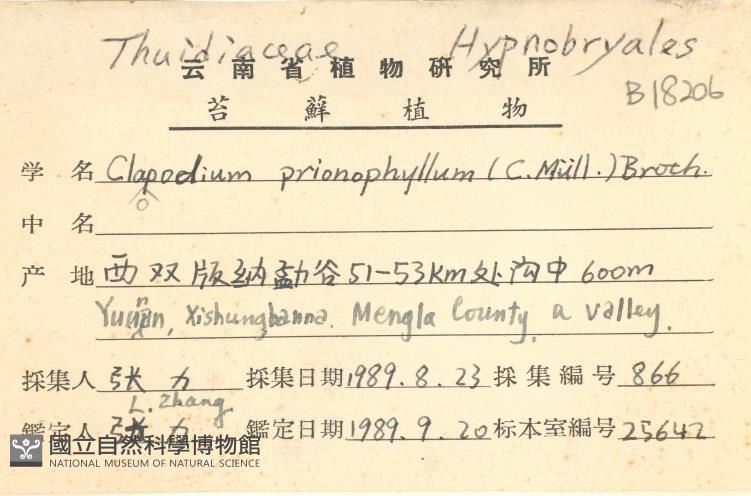 Thuidiaceae Hypnobryales
云南省植物研究所
B18206
苔蘚植物
学名 Clapodium prionophyllum (C. Müll.) Broth.
o
中名
产地 西双版纳勐仑 51-53Km处沟中 600m
Yunnan, Xishungbanna. Mengla County, a valley.
採集人 张力 採集日期 1989.8.23 採集編号 866
L. Zhang
鑑定人 张力 鑑定日期 1989.9.20 标本室編号 25642
國立自然科學博物館
NATIONAL MUSEUM OF NATURAL SCIENCE